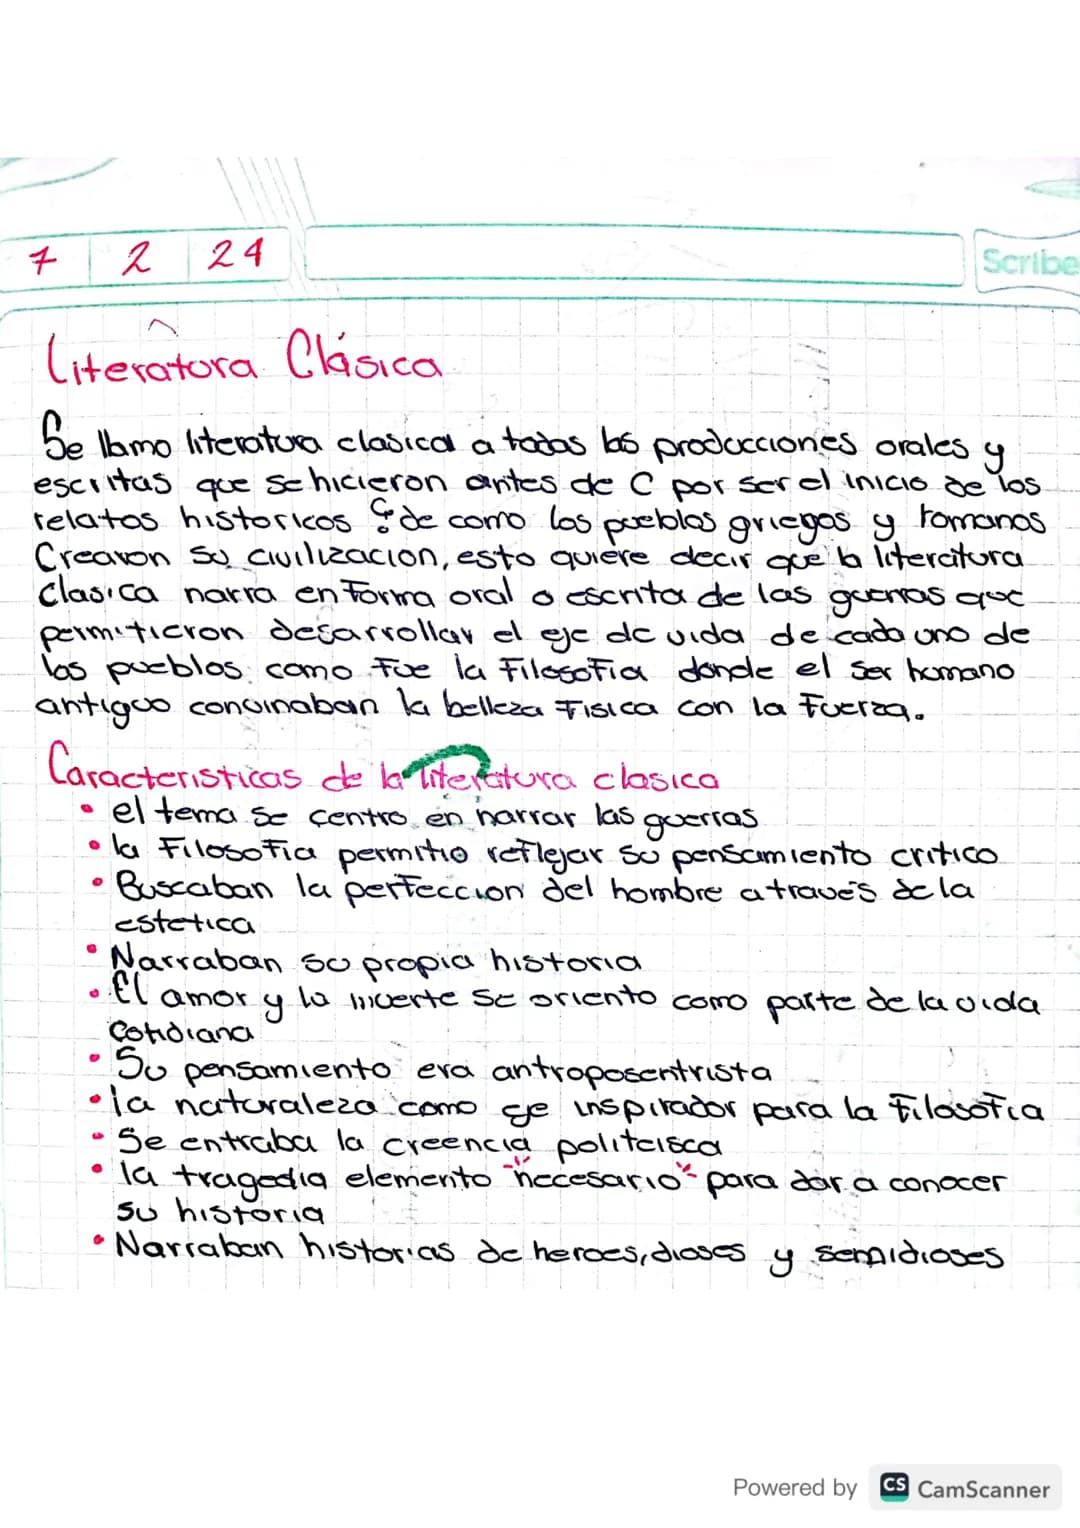 7 2 24
Scribe
Literatura Clásica
Se llamo literatura clasica a todas las producciones orales y
escritas que se hicieron antes de C por ser el inicio de los
relatos historicos de como los pueblos griegos y romanos
Crearon su civilizacion, esto quiere decir que la literatura
clasica narra en forma oral o escrita de las guerras que
permitieron desarrollar el eje de vida de cada uno de
los pueblos como fue la filosofia donde el ser humano
antiguo convinaban la belleza fisica con la fuerza.
Caracteristicas de la literatura clasica
• el tema se centro en narrar las guerras
• la filosofia permitio reflejar su pensamiento critico
• Buscaban la perfeccion del hombre a través de la
estetica
• Narraban su propia historia
• El amor y la muerte se oriento como parte de la vida
cotidiana
• Su pensamiento era antroposentrista
• la naturaleza como eje inspirador para la filosofia
• Se entraba la creencia politeisca
• la tragedia elemento necesario para dar a conocer
su historia
• Narraban historias de heroes, dioses y semidioses
Powered by CS CamScanner